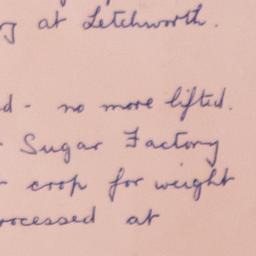 at Letchworth.
- no more lifted.
Sugar Factory
crop for weight
rocessed at